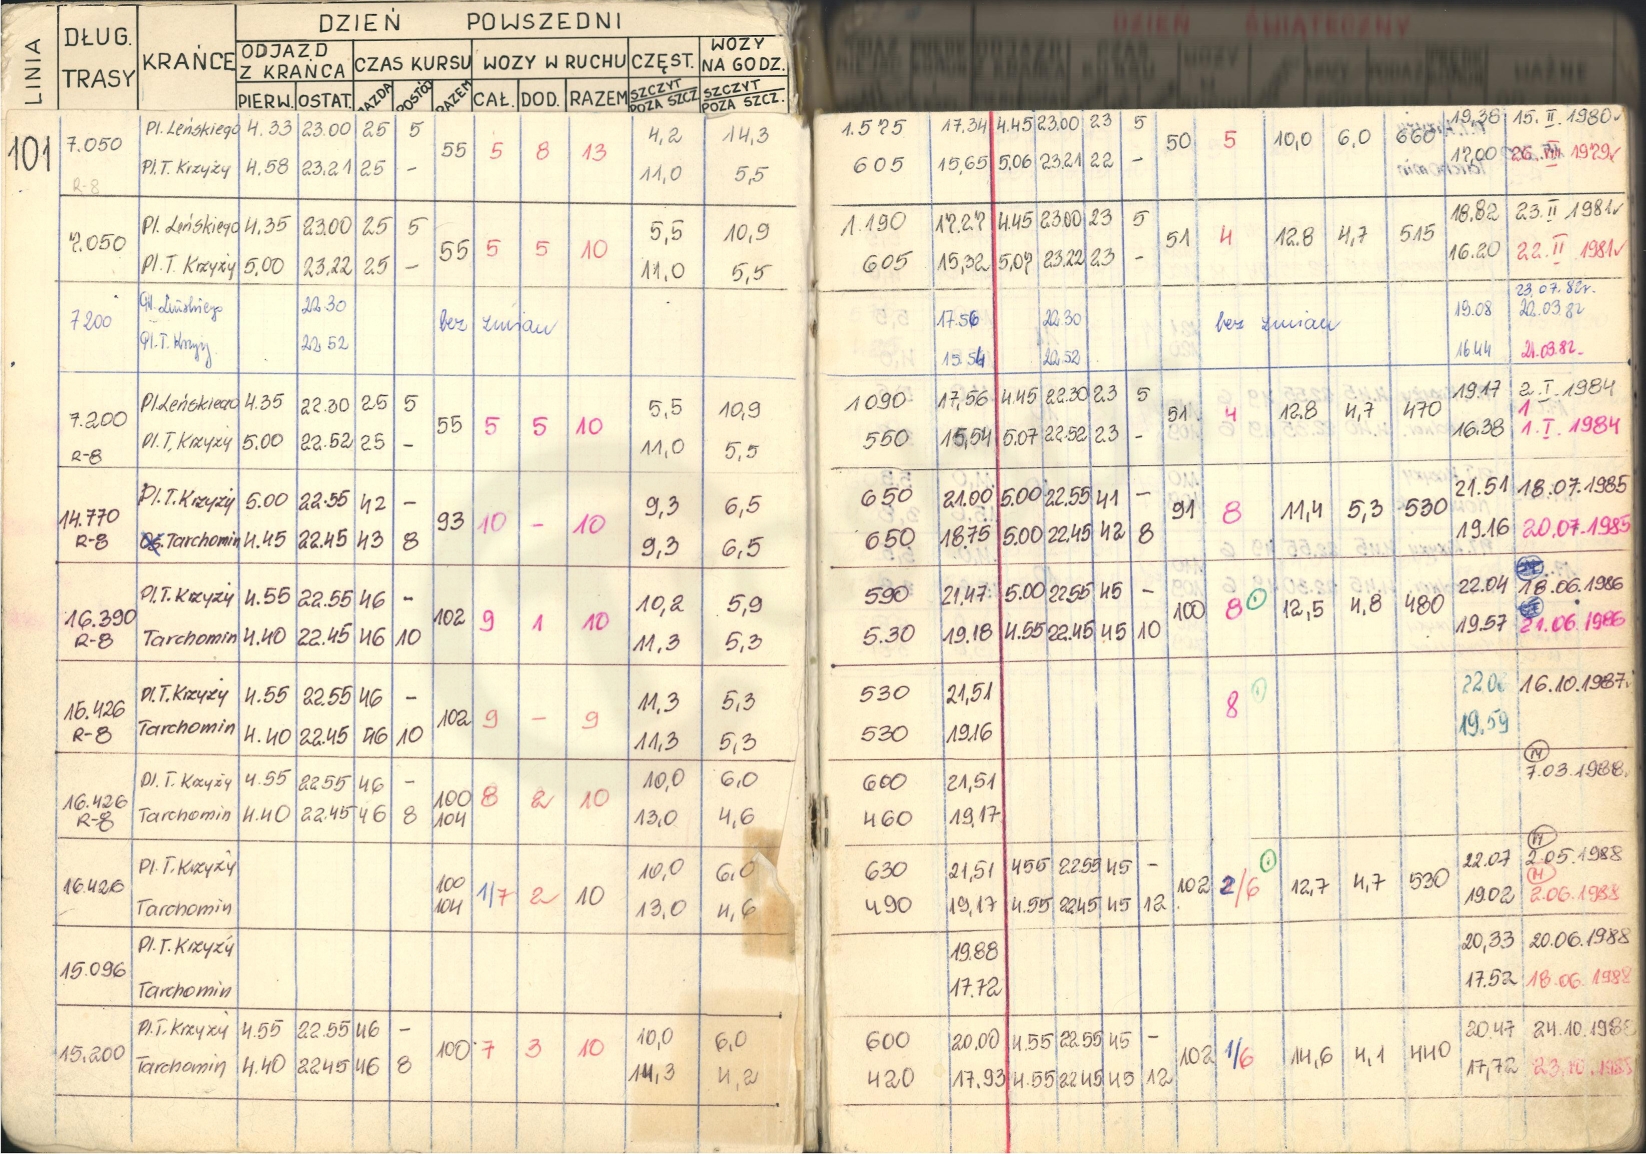 DZIEŃ POWSZEDNI
LINIA DŁUG. TRASY KRAŃCE ODJAZD Z KRAŃCA CZAS KURSU WOZY W RUCHU CZĘST. WOZY NA GODZ.
PIERW. OSTAT. JAZDA POSTÓJ RAZEM CAŁ. DOD. RAZEM SZCZYT POZA SZCZ. SZCZYT POZA SZCZ.
DZIEŃ ŚWIĄTECZNY
101 7.050 R-8 55 5 8 13 50 5 10,0 6,0 660
Pl. Leńskiego 4.33 23.00 25 5 4,2 14,3 1.575 17.34 4.45 23.00 23 5 19,38 15. II. 1980
Pl. T. Krzyży 4.58 23.21 25 - 11,0 5,5 605 15,65 5,06 23.21 22 - 17,00 1979
7.050 55 5 5 10 51 4 12.8 4,7 515
Pl. Leńskiego 4.35 23.00 25 5 5,5 10,9 1.190 17.27 4.45 23.00 23 5 18,82 23. II 1981
Pl. T. Krzyży 5,00 23,22 25 - 11,0 5,5 605 15,32 5,07 23.22 23 - 16.20 22. II 1981
7200 bez zmian bez zmian
22.30 17.56 22 30 19.08 23.07.82r. 22.03.82
Pl. T. Krzyży 22.52 15.54 22.52 16.44 21.03.82
7.200 R-8 55 5 5 10 51 4 12.8 4,7 470
Pl. Leńskiego 4.35 22.30 25 5 5,5 10,9 1090 17,56 4.45 22.30 23 5 19.17 2. I. 1984
Pl. T. Krzyży 5.00 22.52 25 - 11,0 5,5 550 15,54 5.07 22.52 23 - 16.38 1. I. 1984
14.770 R-8 93 10 - 10 91 8 11,4 5,3 530
Pl. T. Krzyży 5.00 22.55 42 - 9,3 6,5 650 21.00 5.00 22.55 41 - 21.51 18.07.1985
Tarchomin 4.45 22.45 43 8 9,3 6,5 650 18.75 5.00 22.45 42 8 19.16 20.07.1985
16.390 R-8 102 9 1 10 100 8 12,5 4,8 480
Pl. T. Krzyży 4.55 22.55 46 - 10,2 5,9 590 21,47 5.00 22.55 45 - 22.04 18.06.1986
Tarchomin 4.40 22.45 46 10 11,3 5,3 5.30 19.18 4.55 22.45 45 10 19.57 21.06.1986
16.426 R-8 102 9 - 9 8
Pl. T. Krzyży 4.55 22.55 46 - 11,3 5,3 530 21,51 16.10.1987
Tarchomin 4.40 22.45 46 10 11,3 5,3 530 19.16 19.59
16.426 R-8 100 104 8 2 10
Pl. T. Krzyży 4.55 22.55 46 - 10,0 6,0 600 21,51 7.03.1988
Tarchomin 4.40 22.45 46 8 13,0 4,6 460 19,17
16.426 100 104 1/7 2 10 102 2/6 12,7 4,7 530
Pl. T. Krzyży 10,0 6,0 630 21,51 4.55 22.55 45 - 22.07 2.05.1988
Tarchomin 13,0 4,6 490 19,17 4.55 22.45 45 12 19.02 2.06.1988
15.096
Pl. T. Krzyży 19.88 20,33 20.06.1988
Tarchomin 17.72 17.52 18.06.1988
15.200 100 7 3 10 102 1/6 14,6 4,1 440
Pl. T. Krzyży 4.55 22.55 46 - 10,0 6,0 600 20.00 4.55 22.55 45 - 20.47 24.10.1988
Tarchomin 4.40 22.45 46 8 14,3 4,2 420 17.93 4.55 22.45 45 12 17,72